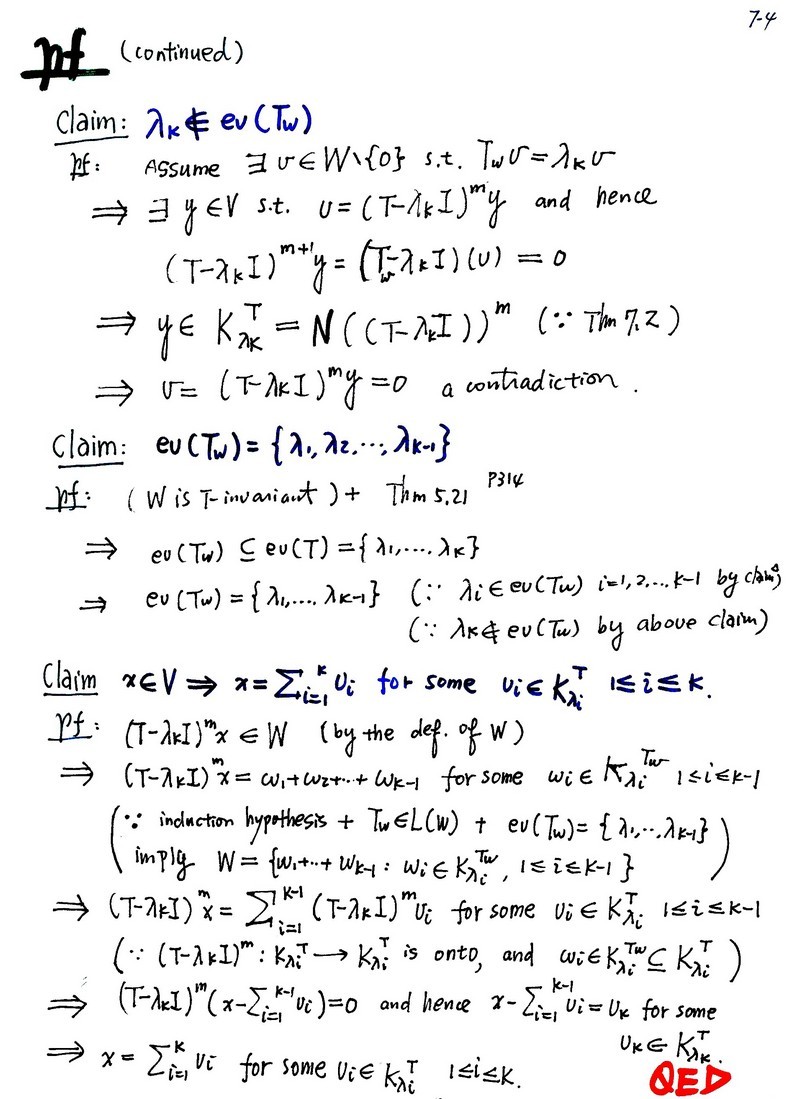 7-4
pf (continued)
Claim: λ_k ∉ ev(T_w)
pf: Assume ∃ v ∈ W\{0} s.t. T_w v = λ_k v
⟹ ∃ y ∈ V s.t. v = (T-λ_k I)^m y and hence
(T-λ_k I)^{m+1} y = (T_w-λ_k I)(v) = 0
⟹ y ∈ K_{λ_k}^T = N((T-λ_k I))^m (∵ Thm 7.2)
⟹ v = (T-λ_k I)^m y = 0 a contradiction.
Claim: ev(T_w) = {λ_1, λ_2, ..., λ_{k-1}}
pf: (W is T-invariant) + Thm 5.21 P314
⟹ ev(T_w) ⊆ ev(T) = {λ_1, .... λ_k}
⟹ ev(T_w) = {λ_1, .... λ_{k-1}} (∵ λ_i ∈ ev(T_w) i=1,2,...k-1 by claim)
(∵ λ_k ∉ ev(T_w) by above claim)
Claim x ∈ V ⟹ x = ∑_{i=1}^k v_i for some v_i ∈ K_{λ_i}^T 1≤i≤k.
pf: (T-λ_k I)^m x ∈ W (by the def. of W)
⟹ (T-λ_k I)^m x = w_1+w_2+...+w_{k-1} for some w_i ∈ K_{λ_i}^{T_w} 1≤i≤k-1
(∵ induction hypothesis + T_w ∈ L(W) + ev(T_w) = {λ_1, .., λ_{k-1}}
imply W = {w_1+...+w_{k-1} : w_i ∈ K_{λ_i}^{T_w}, 1≤i≤k-1})
⟹ (T-λ_k I)^m x = ∑_{i=1}^{k-1} (T-λ_k I)^m v_i for some v_i ∈ K_{λ_i}^T 1≤i≤k-1
(∵ (T-λ_k I)^m : K_{λ_i}^T → K_{λ_i}^T is onto, and w_i ∈ K_{λ_i}^{T_w} ⊆ K_{λ_i}^T)
⟹ (T-λ_k I)^m (x-∑_{i=1}^{k-1} v_i) = 0 and hence x-∑_{i=1}^{k-1} v_i = v_k for some
v_k ∈ K_{λ_k}^T.
⟹ x = ∑_{i=1}^k v_i for some v_i ∈ K_{λ_i}^T 1≤i≤k.
QED